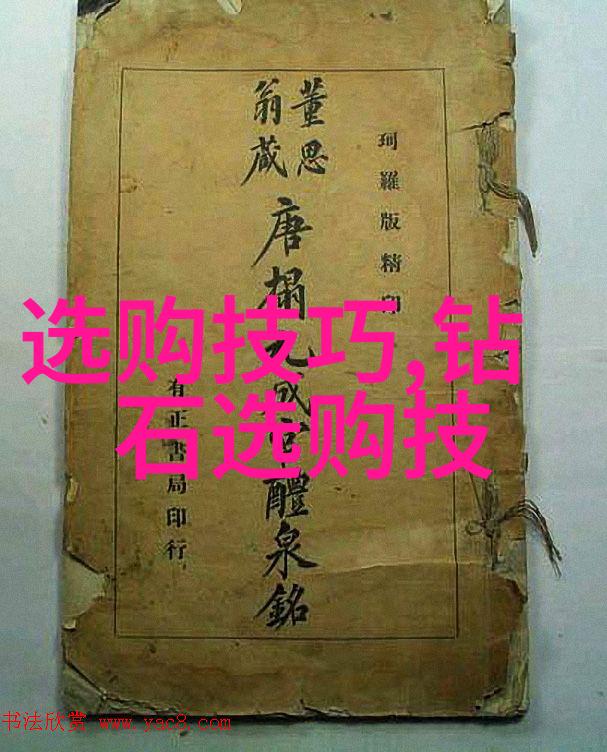 珂羅版精印
董思
翁藏
唐搨九成宮醴泉銘
有正書局印行
选购技巧,钻
石选购技
书法欣赏 www.yac8.com